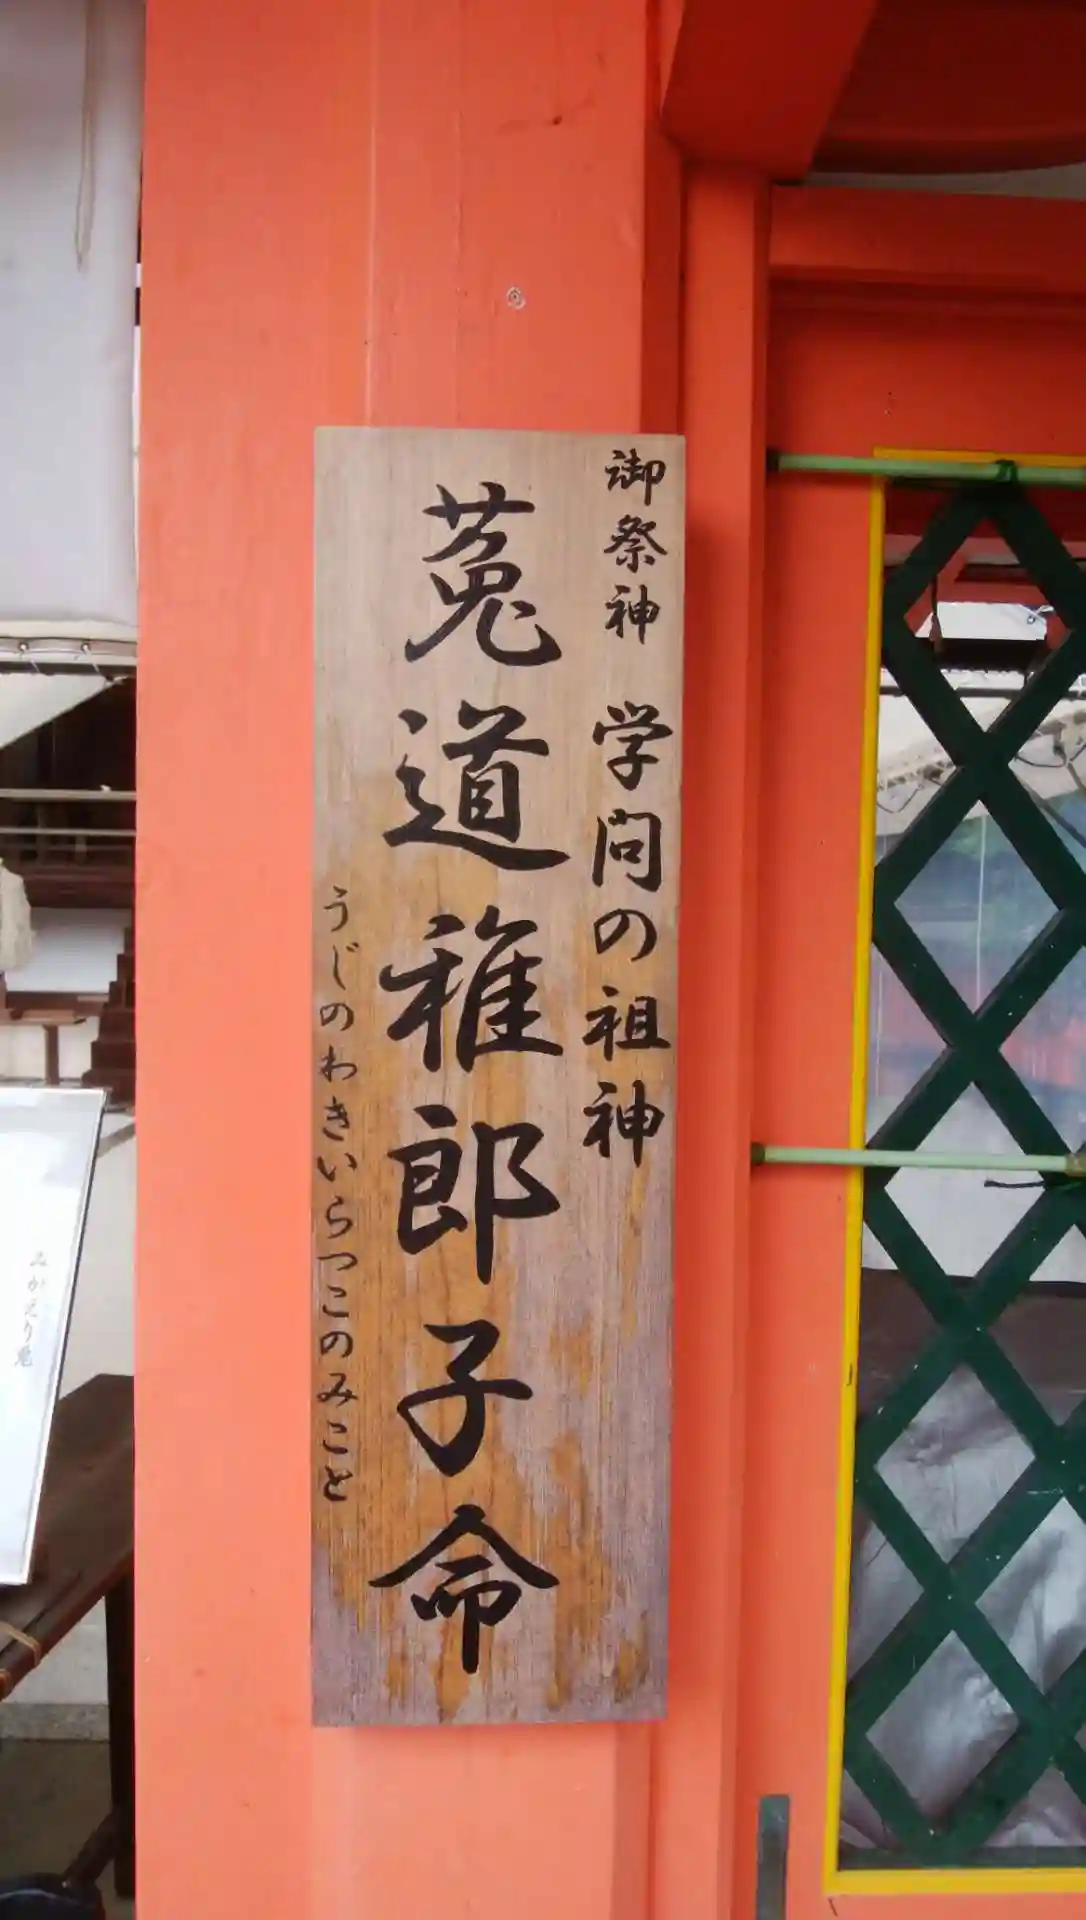 御祭神 学問の祖神
菟道稚郎子命
うじのわきいらつこのみこと
みかえり兎